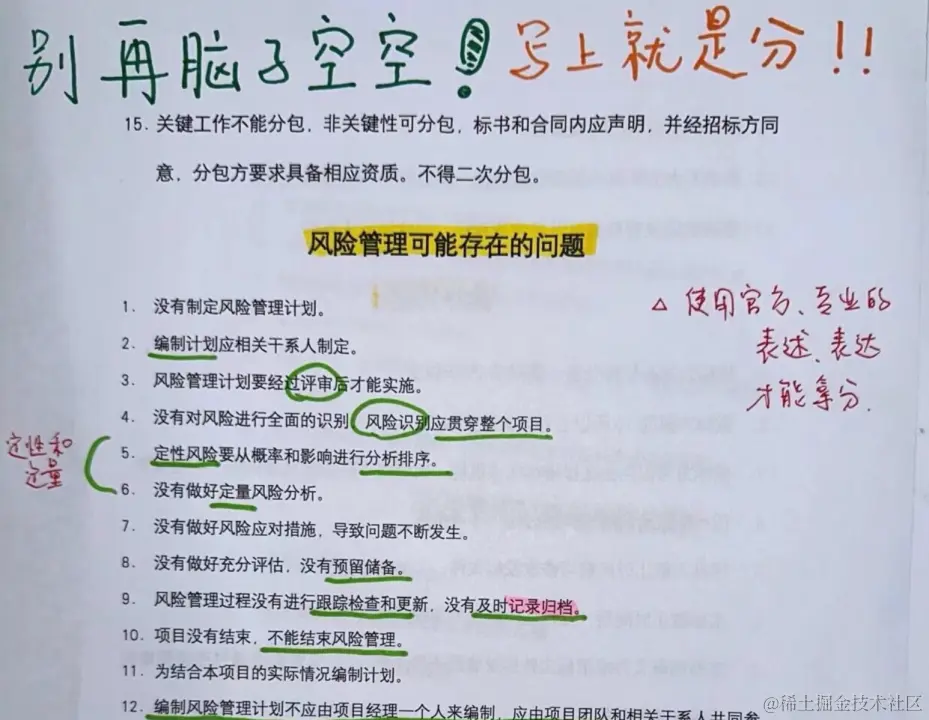 别再脑子空空！写上就是分！！
15. 关键工作不能分包，非关键性可分包，标书和合同内应声明，并经招标方同
意，分包方要求具备相应资质。不得二次分包。
风险管理可能存在的问题
1. 没有制定风险管理计划。
2. 编制计划应相关干系人制定。
3. 风险管理计划要经过评审后才能实施。
4. 没有对风险进行全面的识别，风险识别应贯穿整个项目。
5. 定性风险要从概率和影响进行分析排序。
6. 没有做好定量风险分析。
7. 没有做好风险应对措施，导致问题不断发生。
8. 没有做好充分评估，没有预留储备。
9. 风险管理过程没有进行跟踪检查和更新，没有及时记录归档。
10. 项目没有结束，不能结束风险管理。
11. 为结合本项目的实际情况编制计划。
12. 编制风险管理计划不应由项目经理一个人来编制，应由项目团队和相关干系人共同参
△ 使用官方、专业的
表述、表达
才能拿分.
定性和
定量
@稀土掘金技术社区